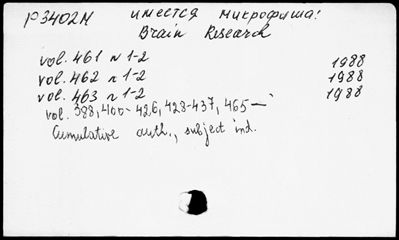 р3402М имеется микрофиша:
Brain Research
vol. 461 n 1-2 1988
vol. 462 n 1-2 1988
vol. 463 n 1-2 1988
vol. 388, 400- 426, 428-437, 465—
Cumulative auth., subject ind.